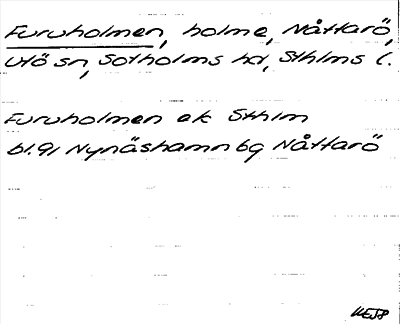 Furuholmen, holme, Nåttarö,
Utö sn, Sotholms hd, Sthlms l.
Furuholmen ek Sthlm
bl.91 Nynäshamn bg Nåttarö